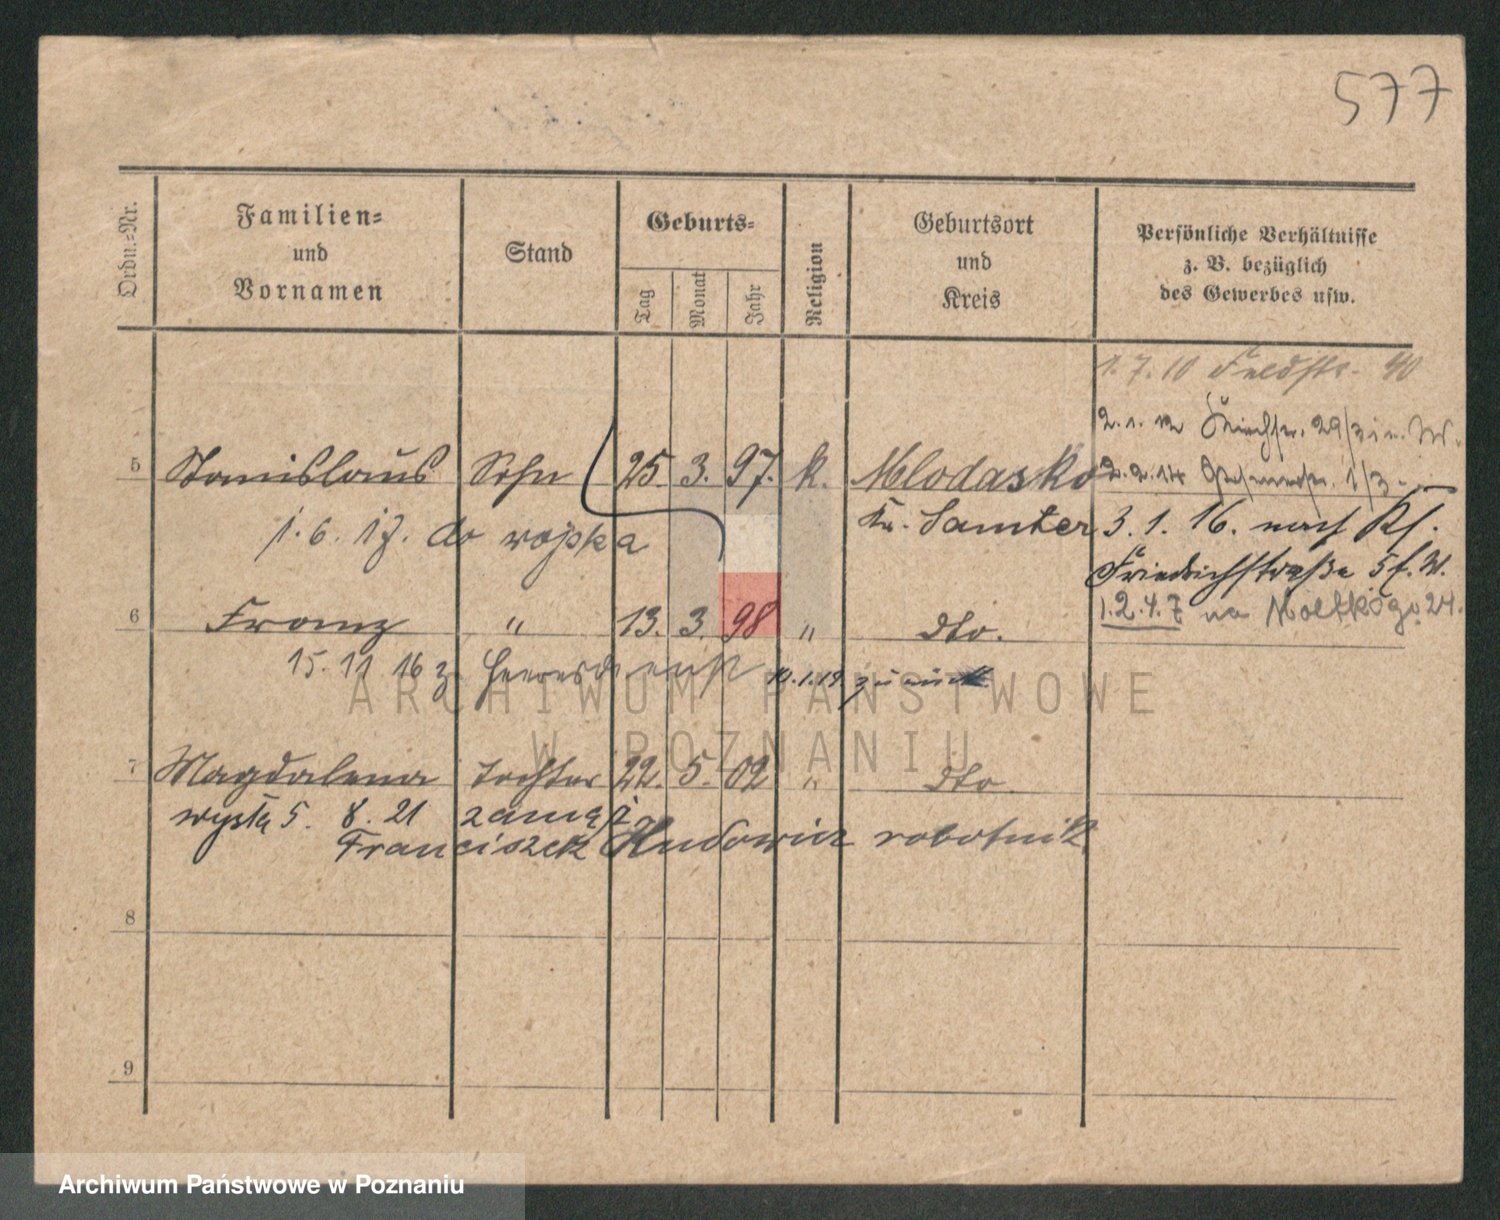 577
Ordn.=Nr.
Familien=
und
Vornamen
Stand
Geburts=
Tag
Monat
Jahr
Religion
Geburtsort
und
Kreis
Persönliche Verhältnisse
z. B. bezüglich
des Gewerbes usw.
1.7.10 Feldstr. 40
29
5 Stanislaus Sohn 25. 3. 97. k. Mlodasko
2.2.14 1/3.
Kr. Samter
3.1.16. nach
1.6.17. do wojska
Friedrichstraße 5
6 Franz " 13. 3. 98 " dto.
1.2.4.7 na Moltkego 24.
15.11 16 z. Heeresdienst 10.1.19 zurück.
ARCHIWUM PAŃSTWOWE
W POZNANIU
7 Magdalena Tochter 22. 5. 02 " dto.
wyszła 5. 8. 21 zamąż
Franciszek robotnik
8
9
Archiwum Państwowe w Poznaniu